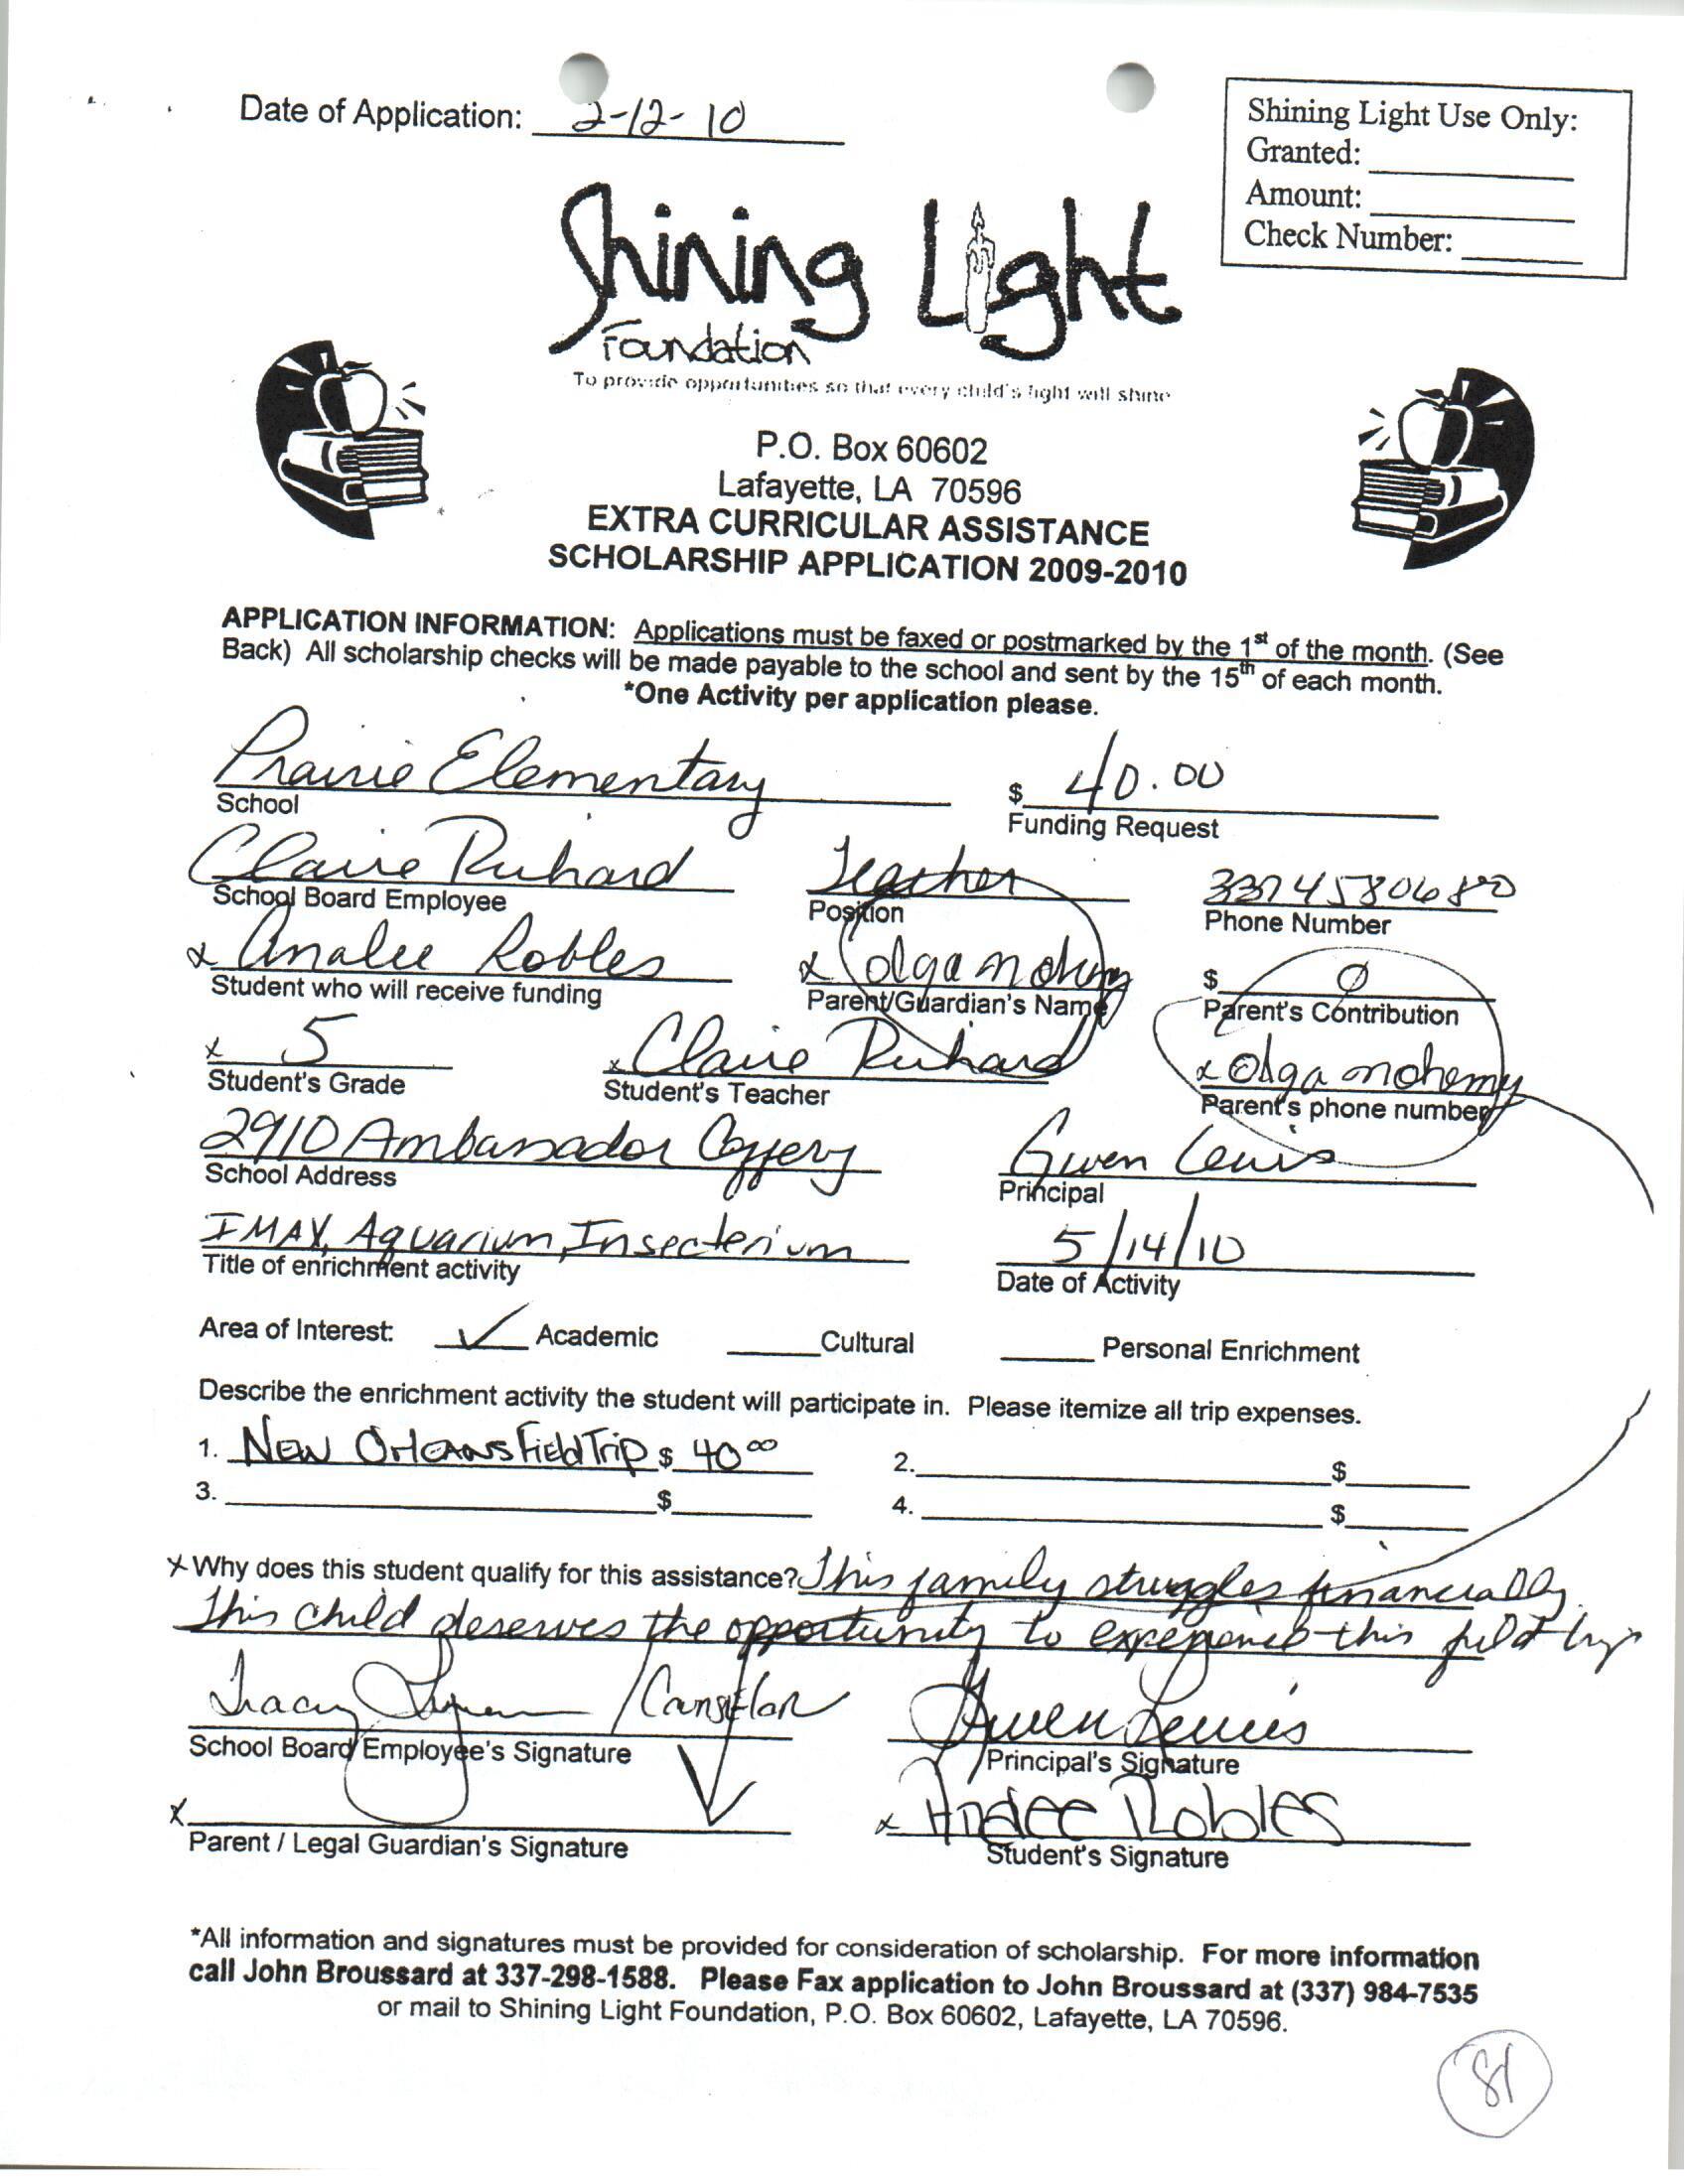 Date of Application: 2-12-10
Shining Light Use Only:
Granted:
Amount:
Check Number:
Shining Light
Foundation
To provide opportunities so that every child's light will shine
P.O. Box 60602
Lafayette, LA 70596
EXTRA CURRICULAR ASSISTANCE
SCHOLARSHIP APPLICATION 2009-2010
APPLICATION INFORMATION: Applications must be faxed or postmarked by the 1st of the month. (See
Back) All scholarship checks will be made payable to the school and sent by the 15th of each month.
*One Activity per application please.
Prairie Elementary $ 40.00
School Funding Request
Claire Richard Teacher
School Board Employee Position Phone Number
x Analee Robles x Olga $ 0
Student who will receive funding Parent/Guardian's Name Parent's Contribution
x 5 x Claire Richard x Olga
Student's Grade Student's Teacher Parent's phone number
2910 Ambassador Caffery Gwen Lewis
School Address Principal
IMAX, Aquarium, Insecterium 5/14/10
Title of enrichment activity Date of Activity
Area of Interest: ✓ Academic Cultural Personal Enrichment
Describe the enrichment activity the student will participate in. Please itemize all trip expenses.
1. New Orleans Field Trip $ 40 00 2. $
3. $ 4. $
x Why does this student qualify for this assistance? This family struggles financially.
This child deserves the opportunity to experience this field trip
Tracy /Counselor Gwen Lewis
School Board Employee's Signature Principal's Signature
x x Robles
Parent / Legal Guardian's Signature Student's Signature
*All information and signatures must be provided for consideration of scholarship. For more information
call John Broussard at 337-298-1588. Please Fax application to John Broussard at (337) 984-7535
or mail to Shining Light Foundation, P.O. Box 60602, Lafayette, LA 70596.
81